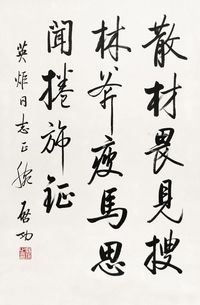 散材畏見搜
林斧疲馬思
聞捲旆鉦
英炬同志正腕 啟功